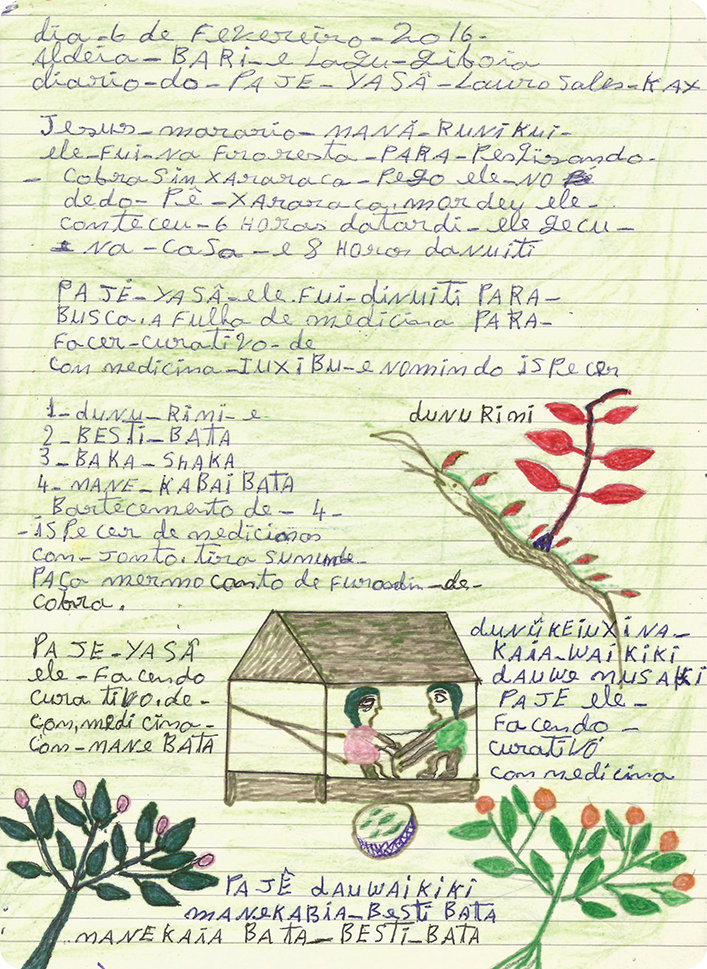 dia-6 de Fezereiro-2016-
Aldeia-BARI-e Lagu-giboia
diario-do-PAJE-YASÃ-Lauro Sales-KAX
Jesus-marario-MANÃ-RUNIKUI-
ele-Fui-na Froresta-PARA-Pesgisando-
- Cobra Sin XAraraca-Pego ele-NO
dedo-Pê-XARaraca, mordey ele-
Conteceu-6 Horas datardi-ele gecu-
NA-CaSa-e 8 Horos danuiti
PAJÉ-YASÃ-ele. Fui-dinuiti PARA-
BUSCA.A Fulha de medicina PARA-
Facer-curativo-de
Con medicina-IUXIBU-e Nomindo iSPecer
1-dunu-Rimi-e
2-BESTI-BATA
3-BAKA-SHAKA
4-MANE-KABAiBATA
Bartecemento de-4-
-iSPecer de medicinas
Con-Jonto.tira
PAÇa mermo canto de-de-
Cobra.
dunuRimi
PAJE-YASÃ
ele-Facendo
Curativo.de-
Con, medicina-
Con-MANE BATA
dunũKEiUXiNA-
KAiA-WAiKiKi
dauwe NUSAKi
PAJE ele-
Facendo-
Curativo
Con medicina
PAJÊ dAUWAiKiKi
MANEKABiA-BESTi BATA
MANEKAiA BATA-BESTi-BATA